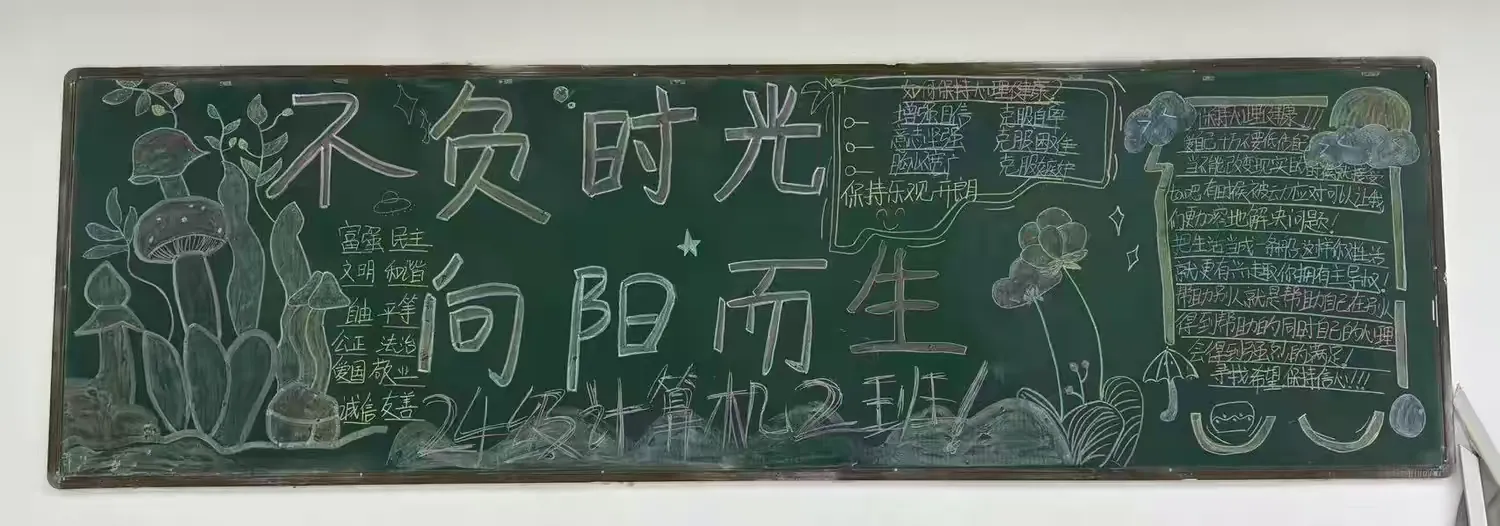 不负时光
向阳而生
24级计算机2班!
富强 民主
文明 和谐
自由 平等
公正 法治
爱国 敬业
诚信 友善
如何保持心理健康?
增强自信 克服自卑
意志坚强 克服困难
胸怀宽广 克服嫉妒
保持乐观开朗
保持心理健康!!!
自己千万不要低估自
当不能改变现实的时候就接受
他吧有时候被动应对可以让我
们更加客观地解决问题!
把生活当成一种 这样你对生活
就更有兴趣 你拥有主导权!
帮助别人就是帮助自己在别人
得到帮助的同时自己的心理
会得到强烈的满足!
寻找希望 保持信心!!!